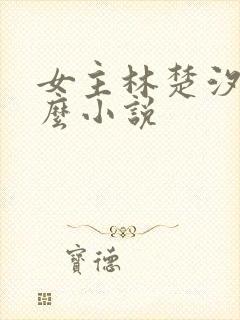 女主林楚汐
麼小說
寶德